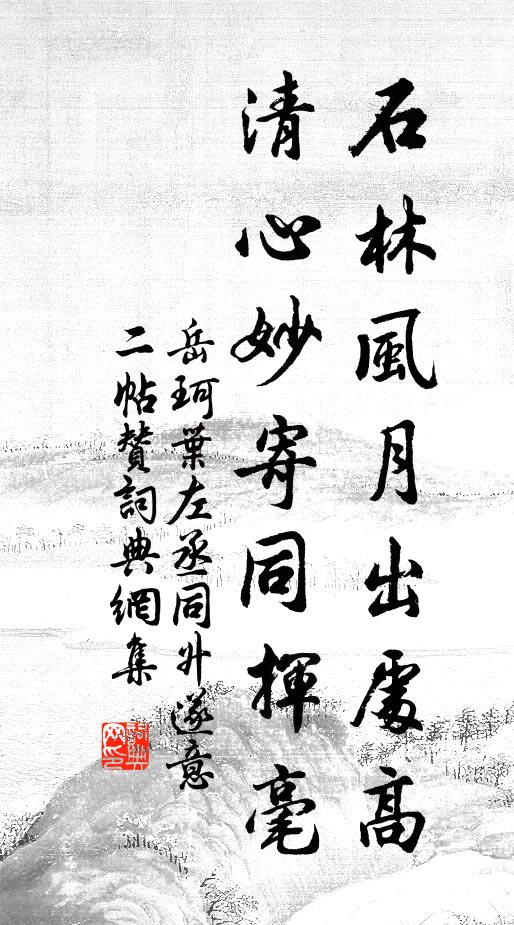 石林風月出處高
清心妙寄同揮毫
岳珂葉左丞同升遂意
二帖贊詞典網集